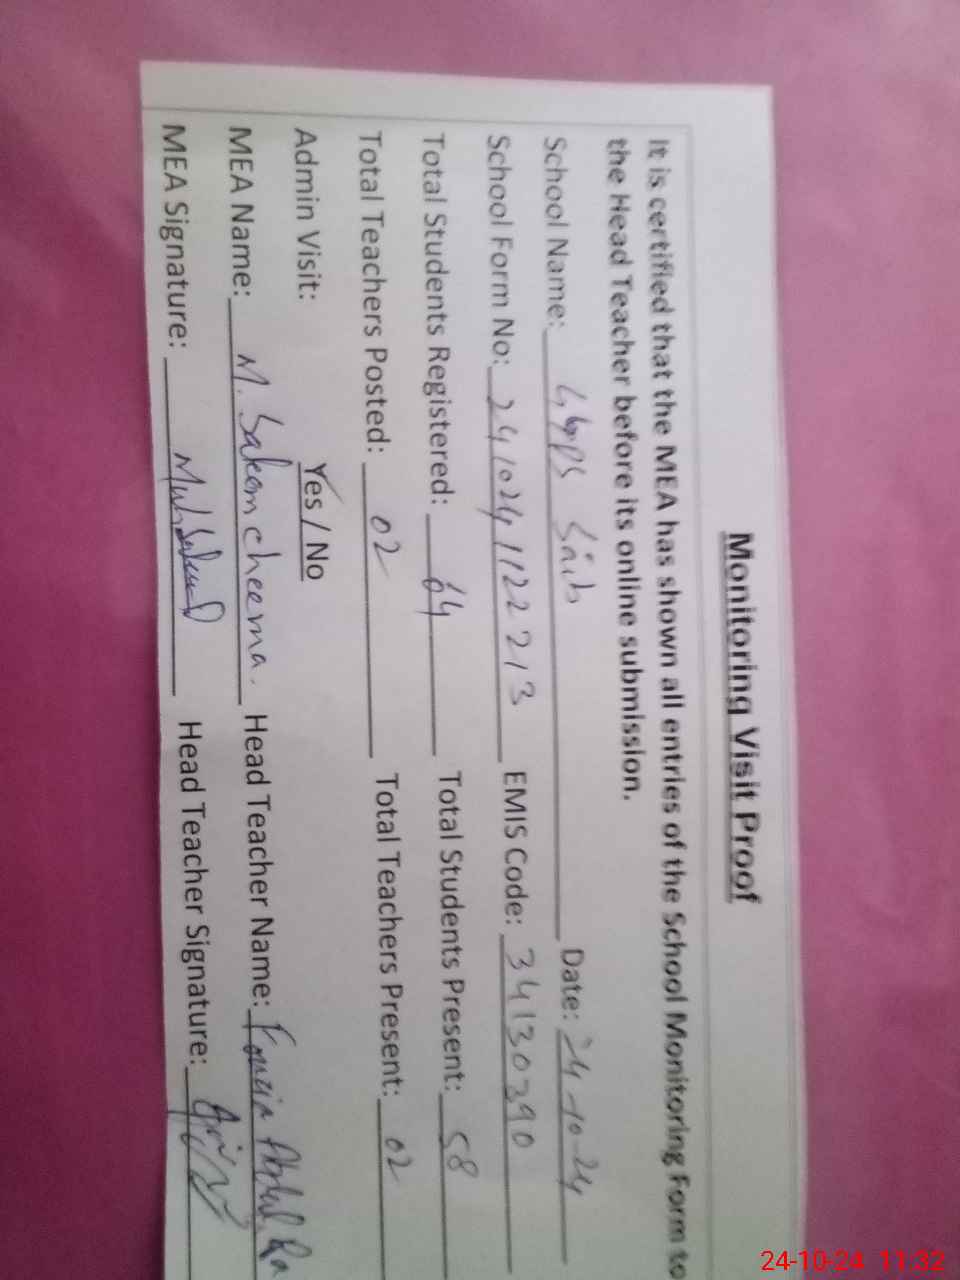 Monitoring Visit Proof
It is certified that the MEA has shown all entries of the School Monitoring Form to
the Head Teacher before its online submission.
School Name: Date: 24-10-24
School Form No: 241024112 2213 EMIS Code: 34130390
Total Students Registered: 64 Total Students Present: 58
Total Teachers Posted: 02 Total Teachers Present: 02
Admin Visit: Yes / No
MEA Name: M. Saleem cheema. Head Teacher Name:
MEA Signature: Head Teacher Signature:
24-10-24 11:32